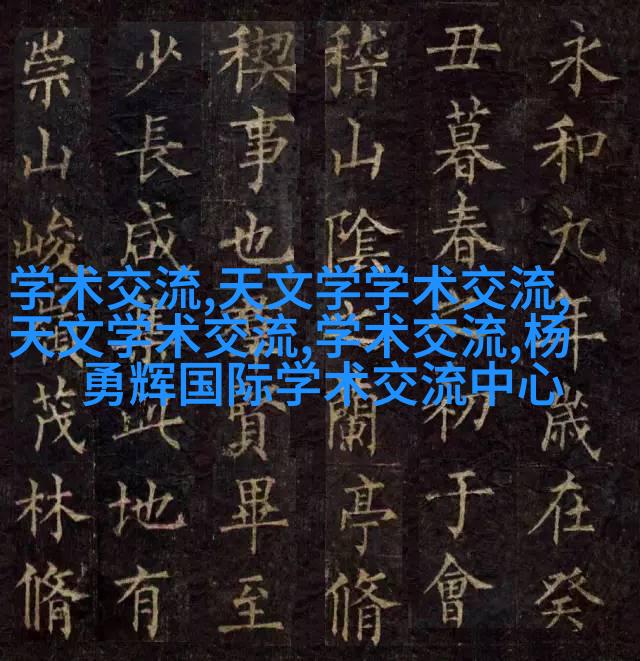 永和九年歲在癸
丑暮春初于會
稽山陰蘭亭脩
稧事也賢畢至
少長咸此地有
崇山峻茂林脩
学术交流,天文学学术交流,
天文学术交流,学术交流,杨
勇辉国际学术交流中心